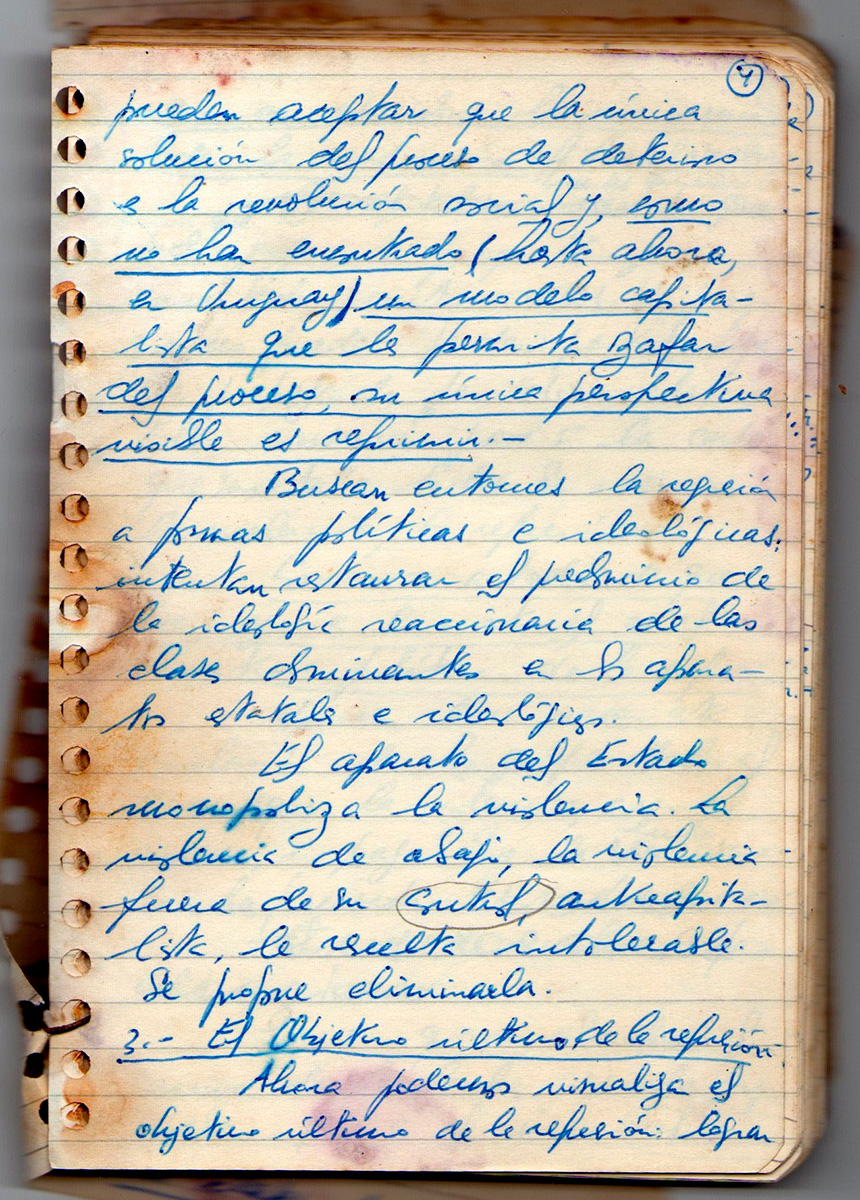 4
pueden aceptar que la única
solución del proceso de deterioro
es la revolución social y, como
no han encontrado (hasta ahora,
en Uruguay) un modelo capita-
lista que les permita zafar
del proceso, su única perspectiva
visible es reprimir.-
Buscan entonces la regresión
a formas políticas e ideológicas;
intentan restaurar el predominio de
la ideología reaccionaria de las
clases dominantes en los apara-
tos estatales e ideológicos.
El aparato del Estado
monopoliza la violencia. La
violencia de abajo, la violencia
fuera de su control, anticapita-
lista, le resulta intolerable.
Se propone eliminarla.
3.- El Objetivo último de la represión
Ahora podemos visualizar el
objetivo último de la represión: lograr